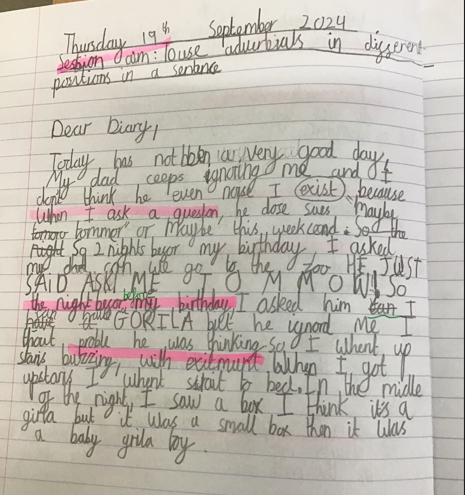 Thursday 19th September 2024
session aim: To use adverbials in different
positions in a sentence
Dear Diary,
Today has not bben a very good day,
My dad ceeps ignoring me and I
dont think he even nows I exist because
When I ask a queston, he dose saes maybe
tommor or maybe this weekend. So the
So 2 nights befor my birthday I asked
my dad can we go to the zoo HE JUST
SAID ASK ME TOMMOW! So
the night befor my birthday I asked him can I
have a GORILA but he ignord Me I
thout proble he was thinking so I whent up
stairs buzzing, with exitmunt When I got
upstars I whent strat to bed. In the midle
of the night, I saw a box I think it's a
girla but it was a small box then it was
a baby grila boy.